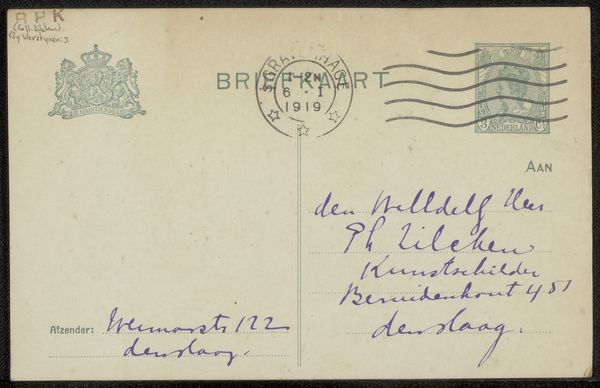 R P K
(Coll. Zilcken)
'S GRAVENHAGE
1-2N
6 . I
1919
BRIEFKAART
JE MAINTIENDRAI
NEDERLAND
AAN
den Weledelg Heer
Ph Zilcken
Kunstschilder
Bezuidenhout 451
den Haag.
Afzender: Weimarstr 122
den Haag.